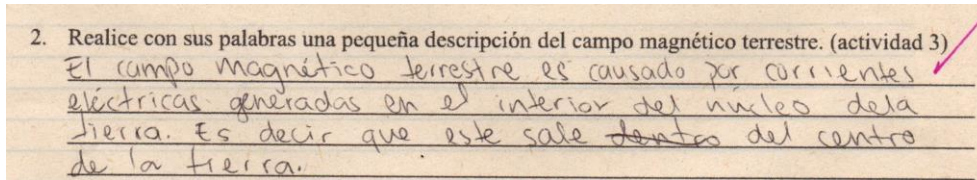 2. Realice con sus palabras una pequeña descripción del campo magnético terrestre. (actividad 3)
El campo magnético terrestre es causado por corrientes
eléctricas generadas en el interior del nucleo dela
tierra. Es decir que este sale dentro del centro
de la tierra.